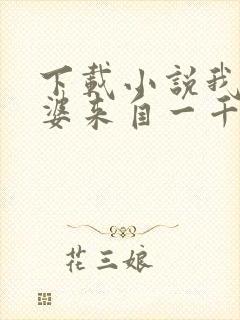 下載小說我
婆來自一千
花三娘